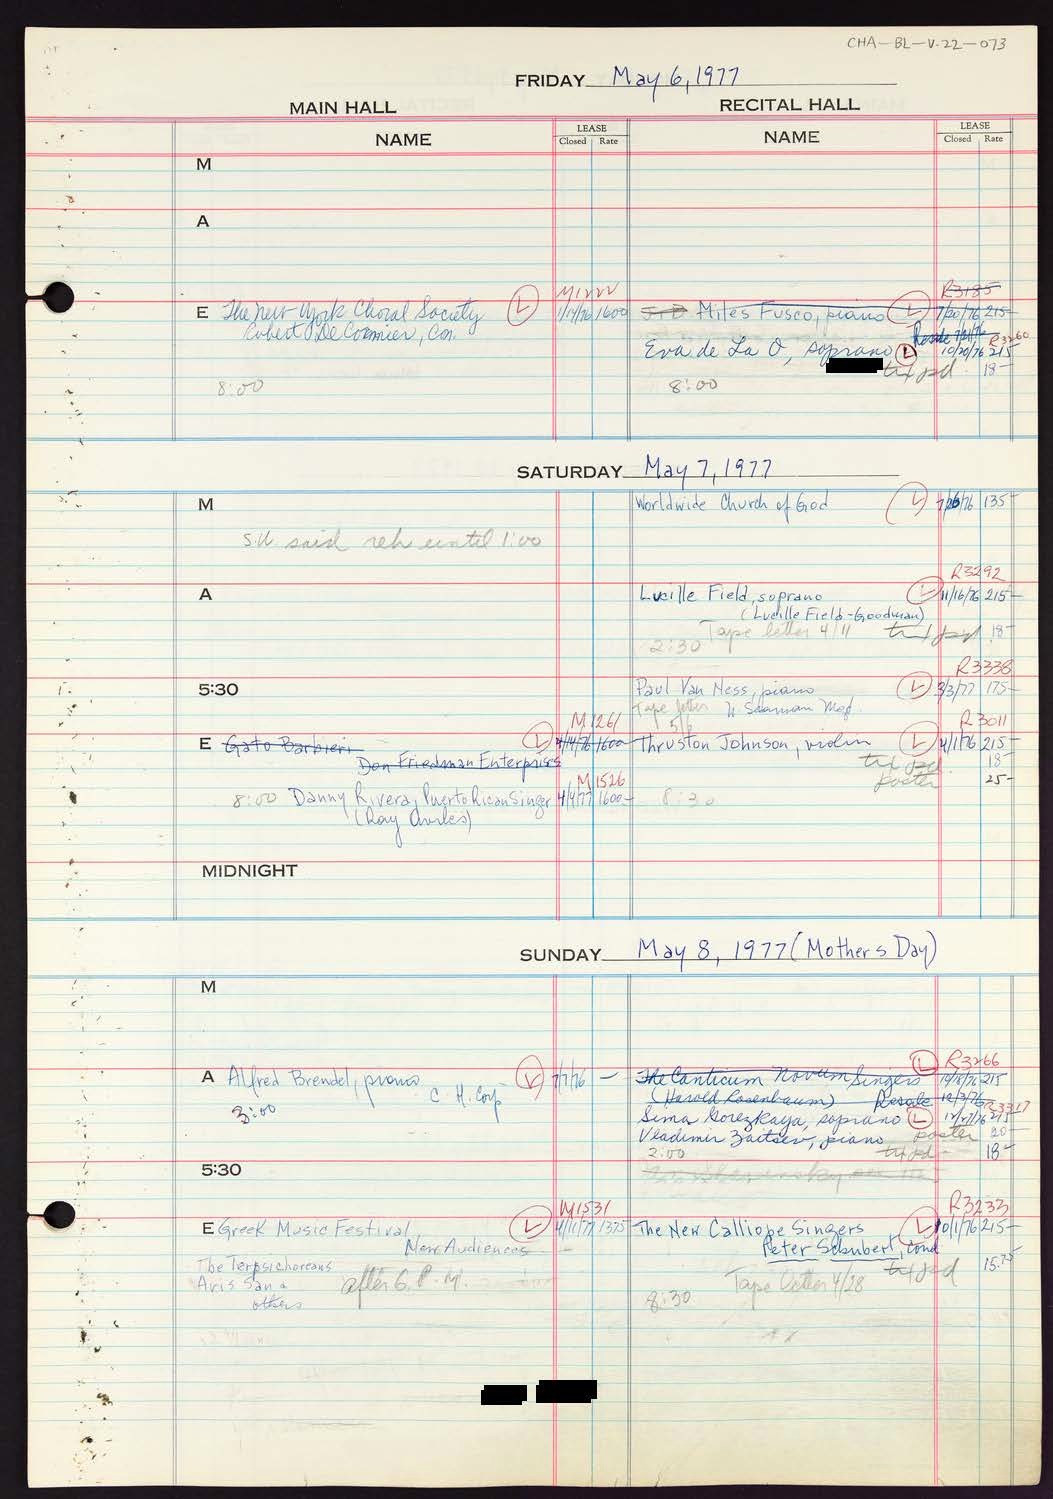 CHA-BL-V.22-073
FRIDAY May 6, 1977
MAIN HALL RECITAL HALL
NAME LEASE Closed Rate NAME LEASE Closed Rate
M
A
M1222 R3185
E The New York Choral Society L 1/14/76 1600 Miles Fusco, piano L 7/20/76 215-
De Cormier, Con. Resale 7/21/76 R3260
Eva de La O, soprano L 10/20/76 215
trl pd 18-
8:00 8:00
SATURDAY May 7, 1977
M Worldwide Church of God L 7/26/76 135-
S.U. said reh until 1:00
R3292
A Lucille Field, soprano L 11/16/76 215-
(Lucille Field-Goodman)
Tape letter 4/11 trl pd 18-
2:30
R3338
5:30 Paul Van Ness, piano L 3/3/77 175-
Tape letter 5/6 Mgt.
M1261 R3011
E Gato Barbieri L 4/14/76 1600- Thruston Johnson, violin L 4/1/76 215-
Don Friedman Enterprises trl pd 18-
M1526 poster 25-
8:00 Danny Rivera, Puerto Rican Singer 4/4/77 1600- 8:30
(Ray Aviles)
MIDNIGHT
SUNDAY May 8, 1977 (Mothers Day)
M
L R3266
A Alfred Brendel, piano L 7/7/76 - The Canticum Novum Singers 10/8/76 215
C. H. Corp (Harold Rosenbaum) Resale 12/3/76 R3317
3:00 Sima Gorezkaya, soprano L 12/27/76 215
Vladimir Zaitsev, piano poster 20-
2:00 trl pd 18-
5:30
M1531 R3233
E Greek Music Festival L 4/11/77 1375 The New Calliope Singers L 10/1/76 215-
New Audiences Peter Schubert, Cond
The Terpsichoreans trl pd 15.75
Aris San & after 6 P.M. Tape Letter 4/28
others 8:30